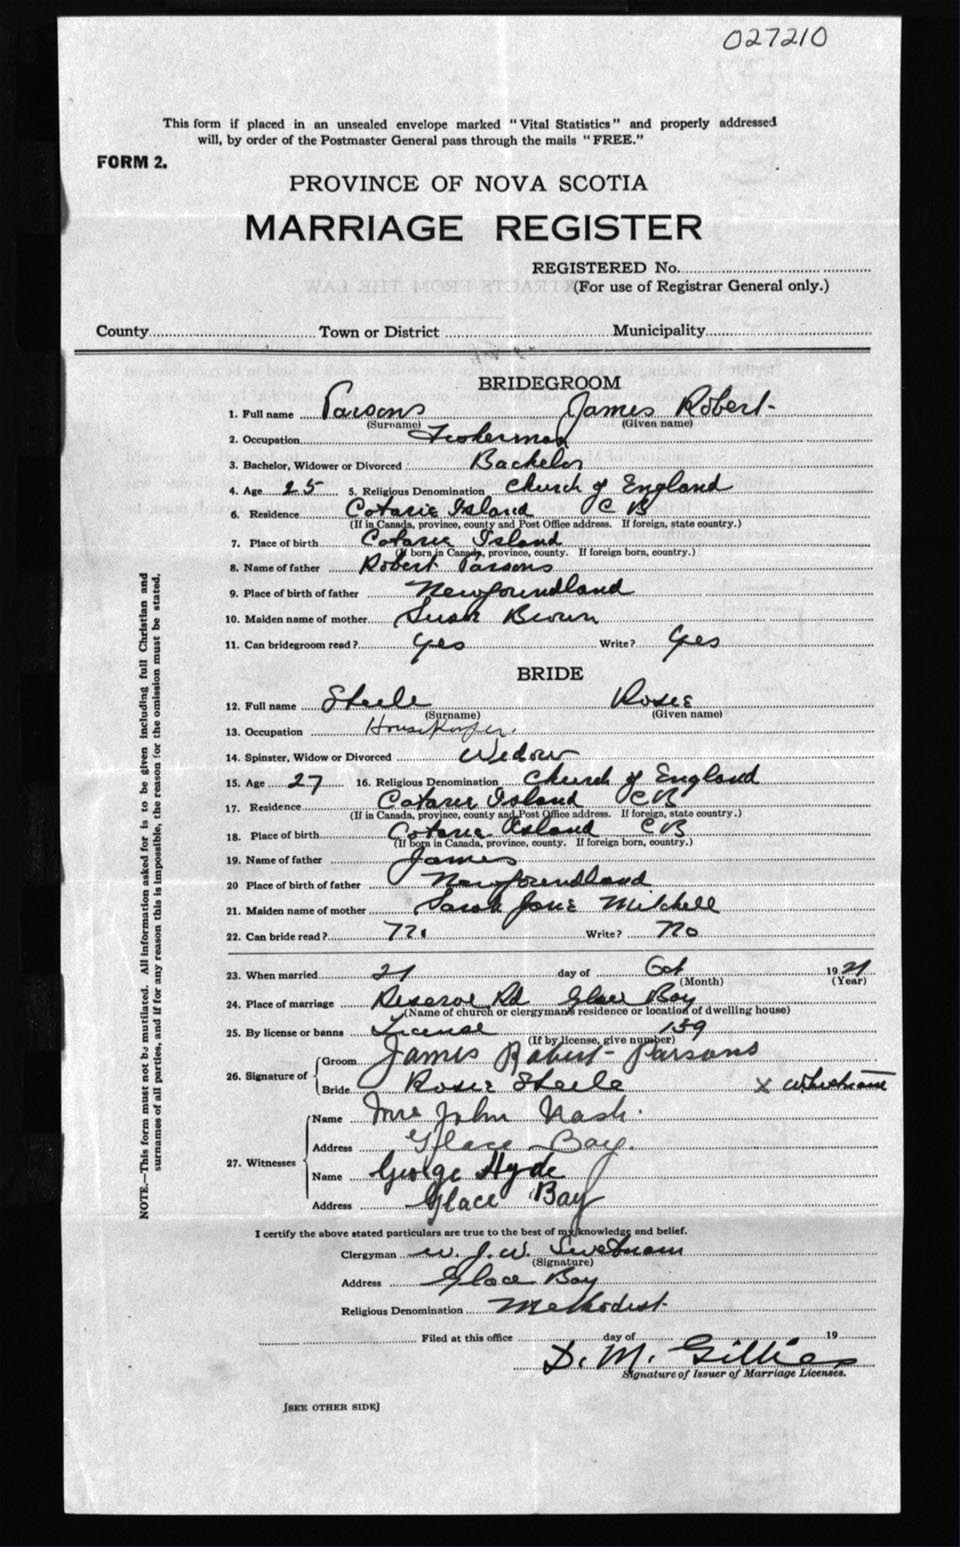 027210
This form if placed in an unsealed envelope marked "Vital Statistics" and properly addressed
will, by order of the Postmaster General pass through the mails "FREE."
FORM 2.
PROVINCE OF NOVA SCOTIA
MARRIAGE REGISTER
REGISTERED No.
(For use of Registrar General only.)
County Town or District Municipality
BRIDEGROOM
1. Full name Parsons James Robert
(Surname) (Given name)
2. Occupation Fisherman
3. Bachelor, Widower or Divorced Bachelor
4. Age 25 5. Religious Denomination Church of England
6. Residence Cotarie Island C B
(If in Canada, province, county and Post Office address. If foreign, state country.)
7. Place of birth Cotarie Island
(If born in Canada, province, county. If foreign born, country.)
8. Name of father Robert Parsons
9. Place of birth of father Newfoundland
10. Maiden name of mother Susan Brown
11. Can bridegroom read? Yes Write? Yes
BRIDE
12. Full name Steele Rosie
(Surname) (Given name)
13. Occupation HouseKeeper.
14. Spinster, Widow or Divorced Widow
15. Age 27 16. Religious Denomination Church of England
17. Residence Cotarie Island CB
(If in Canada, province, county and Post Office address. If foreign, state country.)
18. Place of birth Cotarie Island CB
(If born in Canada, province, county. If foreign born, country.)
19. Name of father James
20 Place of birth of father Newfoundland
21. Maiden name of mother Sarah Jane Mitchell
22. Can bride read? No Write? No
23. When married 21 day of Oct 1921
(Month) (Year)
24. Place of marriage Reserve Rd Glace Bay
(Name of church or clergyman's residence or location of dwelling house)
25. By license or banns License 139
(If by license, give number)
26. Signature of Groom James Robert Parsons
Bride Rosie Steele X
27. Witnesses
Name Mrs John Nash.
Address Glace Bay.
Name George Hyde
Address Glace Bay
I certify the above stated particulars are true to the best of my knowledge and belief.
Clergyman W. J. W. Swetnam
(Signature)
Address Glace Bay
Religious Denomination Methodist
Filed at this office day of 19
D. M. Gillies
Signature of Issuer of Marriage Licenses.
[SEE OTHER SIDE]
NOTE.—This form must not be mutilated. All information asked for is to be given including full Christian and
surnames of all parties, and if for any reason this is impossible, the reason for the omission must be stated.